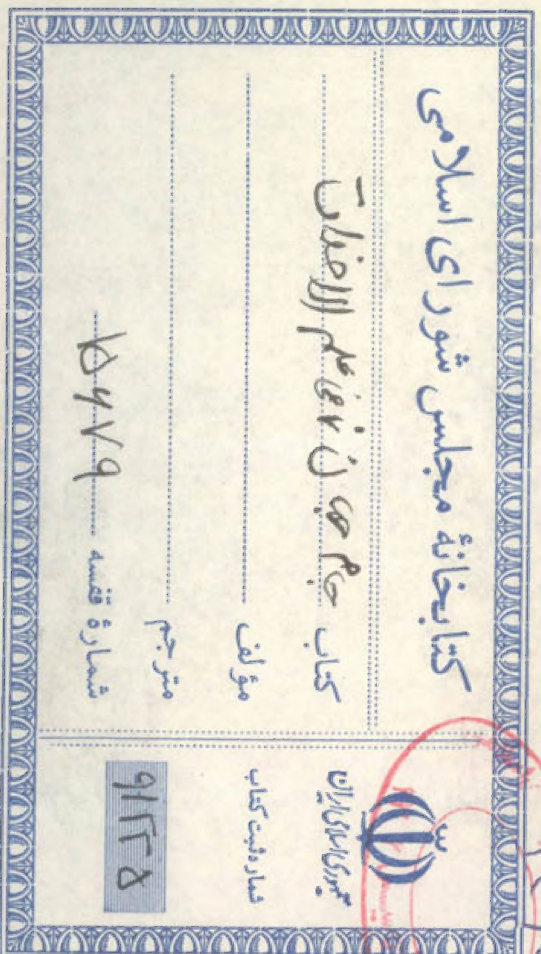 کتابخانهٔ مجلس شورای اسلامی
کتاب جام جهان نمای علم
مؤلف
مترجم
شمارهٔ قفسه ۱۵۶۷۹
جمهوری اسلامی ایران
شماره ثبت کتاب
۹۱۲۲۵